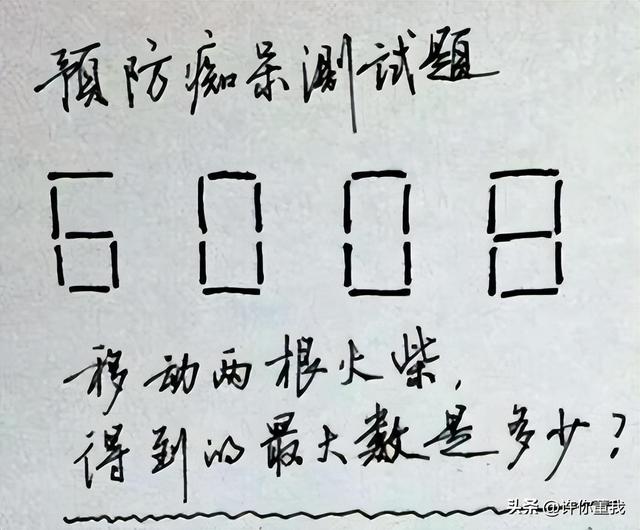 预防痴呆测试题
6008
移动两根火柴，
得到的最大数是多少？
头条 @许你董我